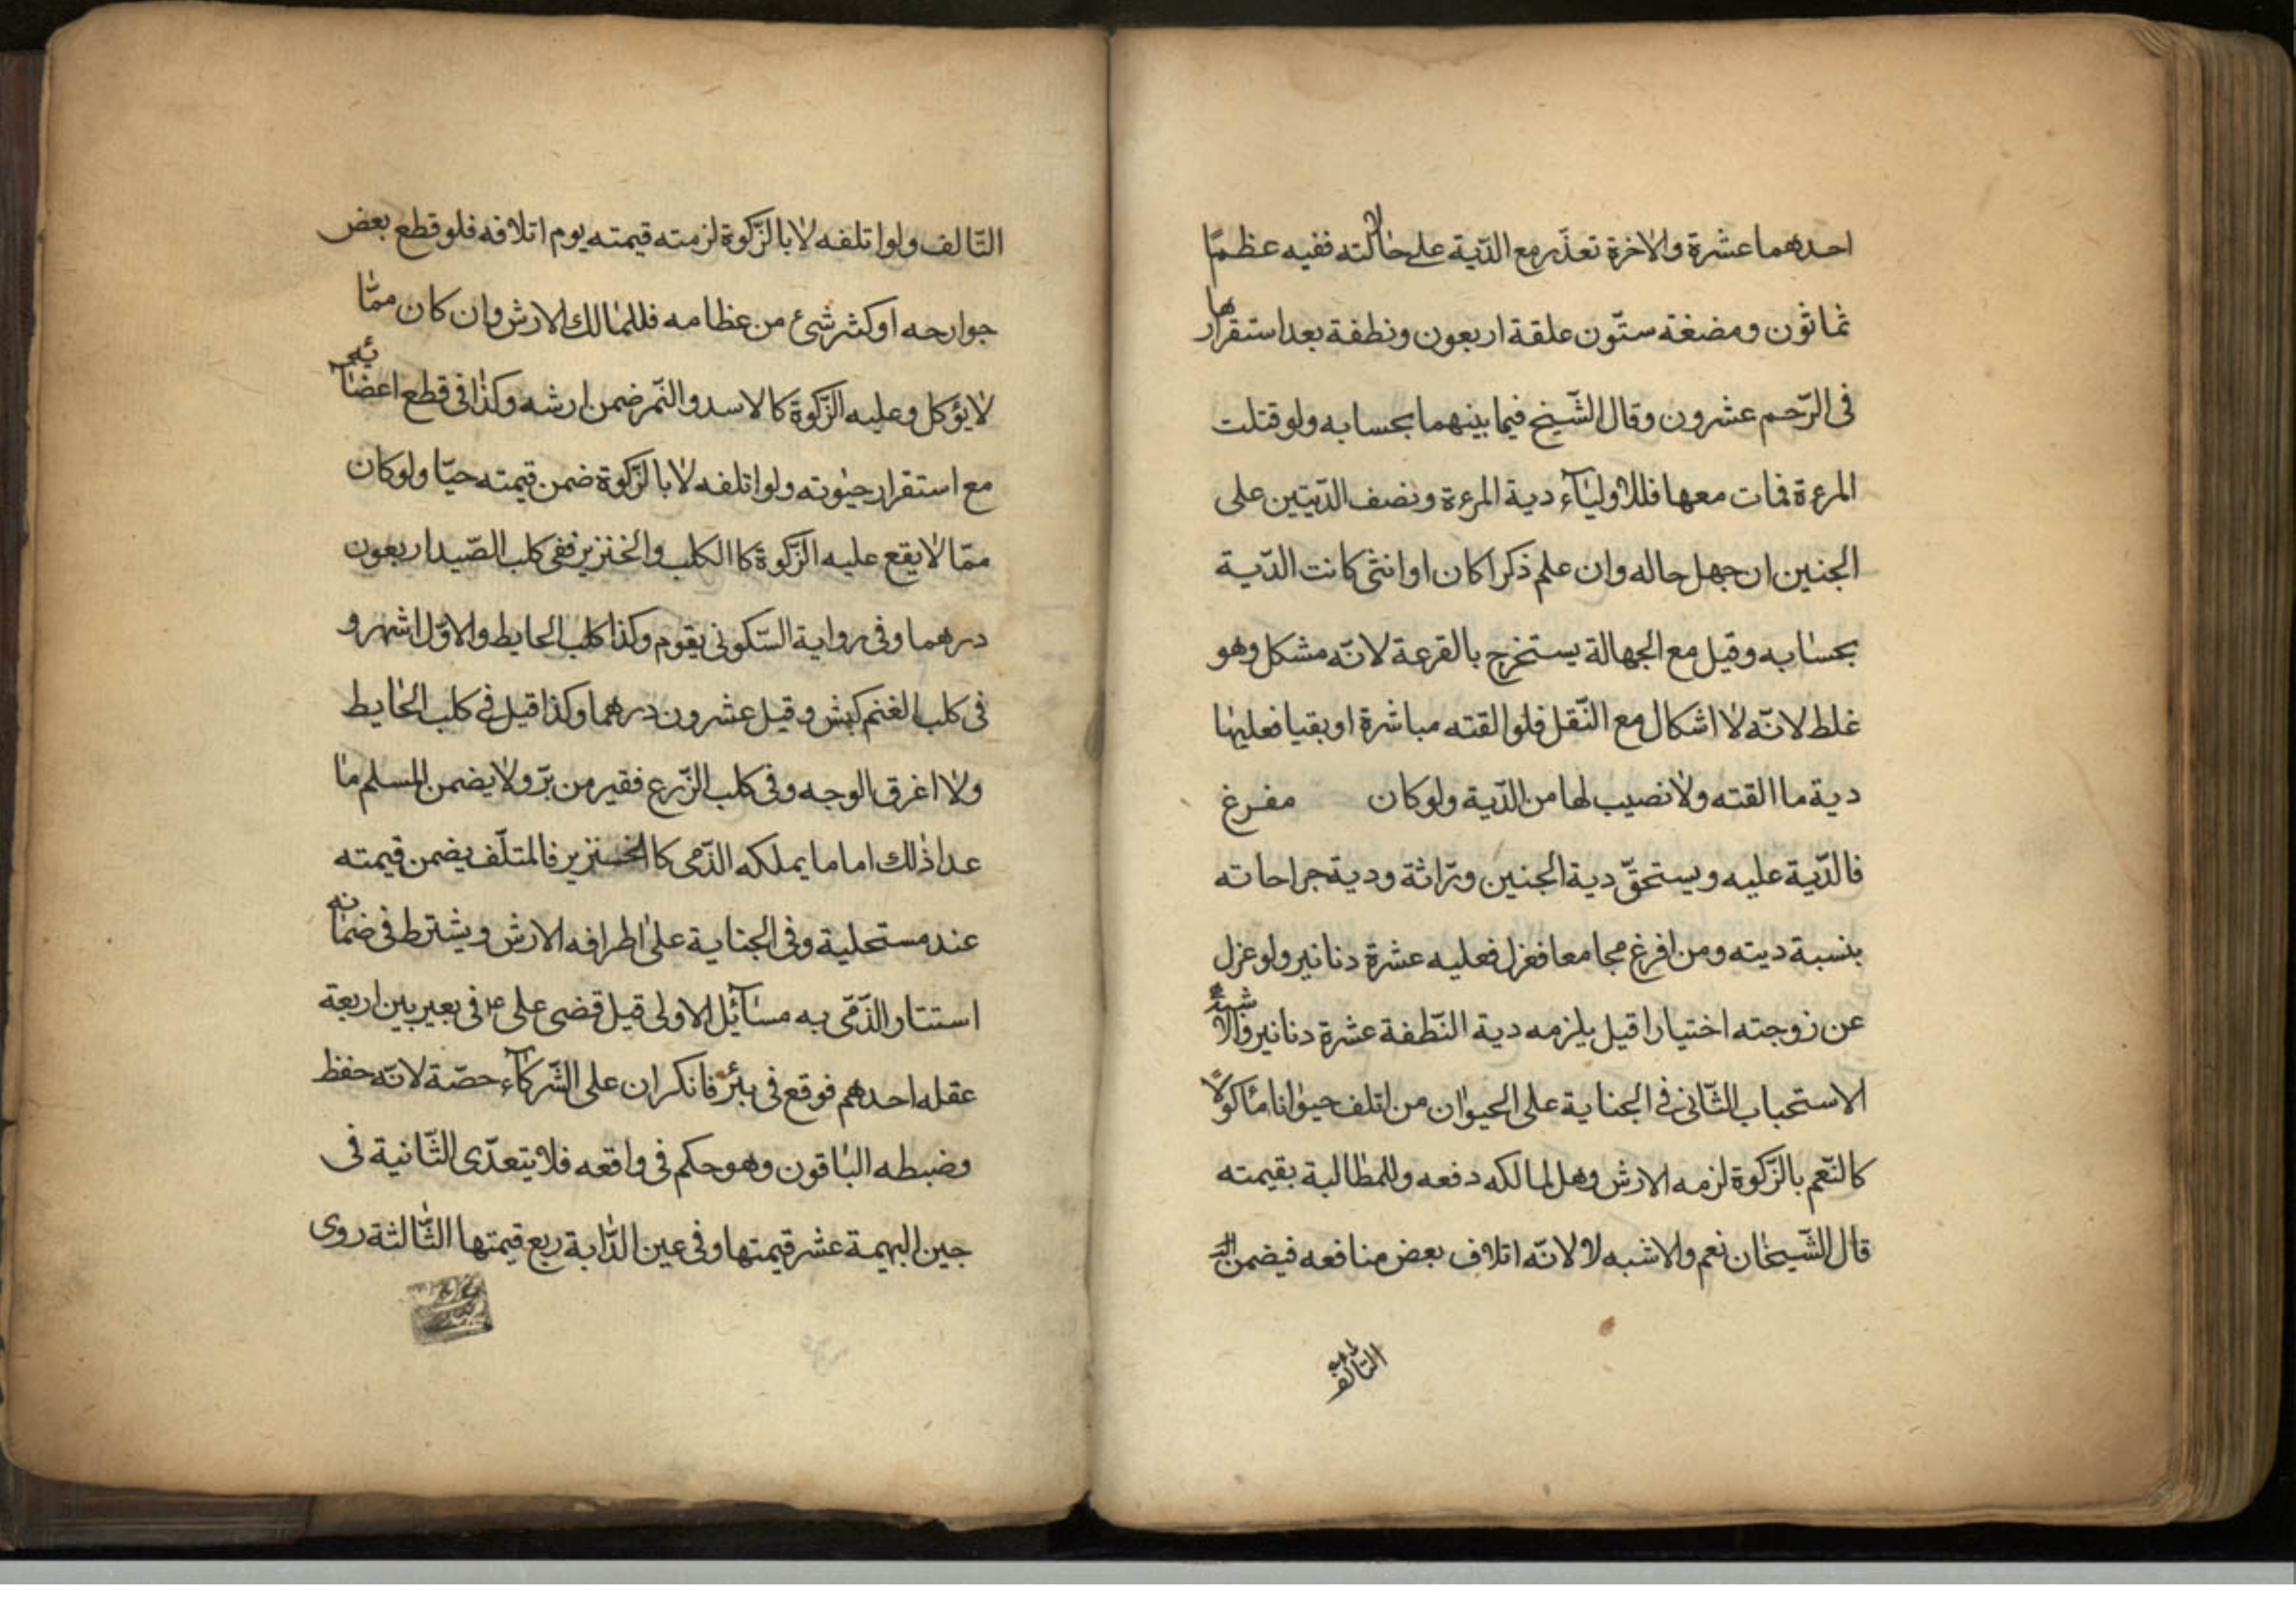 احدهما عشرة والاخرة تعذر مع الدّية على حالته ففيه عظمًا
ثمانون ومضغة ستّون علقة اربعون ونطفة بعد استقرارها
فى الرّحم عشرون وقال الشّيخ فيما بينهما بحسابه ولو قتلت
المرءة فمات معها فللاوليآء دية المرءة ونصف الدّيتين على
الجنين ان جهل حاله وان علم ذكرا كان او انثى كانت الدّية
بحسابه وقيل مع الجهالة يستخرج بالقرعة لانّه مشكل وهو
غلط لانّه لا اشكال مع النّقل فلو القته مباشرة او بقيا فعليها
دية ما القته ولا نصيب لها من الدّية ولو كان مفرغ
فالدّية عليه ويستحقّ دية الجنين ورّاثة ودية جراحاته
بنسبة ديته ومن افرغ مجامعا فعزل فعليه عشرة دنانير ولو عزل
عن زوجته اختيارا قيل يلزمه دية النّطفة عشرة دنانير والاشبه
الاستحباب الثّانى فى الجناية على الحيوان من اتلف حيوانا مأكولًا
كالنّعم بالزّكوة لزمه الارش وهل لمالكه دفعه وللمطالبة بقيمته
قال الشّيخان نعم والاشبه لا لانّه اتلاف بعض منافعه فيضمن
التالف
التّالف ولو اتلفه لا بالزّكوة لزمته قيمته يوم اتلافه فلو قطع بعض
جوارحه او كثر شئ من عظامه فللمالك الارش وان كان ممّا
لا يؤكل وعليه الزّكوة كالاسد والنّمر ضمن ارشه وكذا فى قطع اعضآئه
مع استقرار حيوته ولو اتلفه لا بالزّكوة ضمن قيمته حيّا ولو كان
ممّا لا يقع عليه الزّكوة كا الكلب والخنزير ففى كلب الصّيد اربعون
درهما وفى رواية السّكونى يقوم وكذا كلب الحايط والاوّل اشهر و
فى كلب الغنم كبش وقيل عشرون درهما وكذا قيل فى كلب الحايط
ولا اغرق الوجه وفى كلب الزّرع فقير من برّ ولا يضمن المسلم ما
عدا ذلك اما ما يملكه الذّمى كا الخنزير فالمتلّف يضمن قيمته
عند مستحلية وفى الجناية على اطرافه الارش ويشترط فى ضمانه
استتار الذّمّى به مسآئل الاولى قيل قضى على ع فى بعير بين اربعة
عقله احدهم فوقع فى بئر فانكر ان على الشّركآء حصّة لانّه حفظ
وضبطه الباقون وهو حكم فى واقعه فلا يتعدّى الثّانية فى
جين البهيمة عشر قيمتها وفى عين الدّابة ربع قيمتها الثّالثة روى